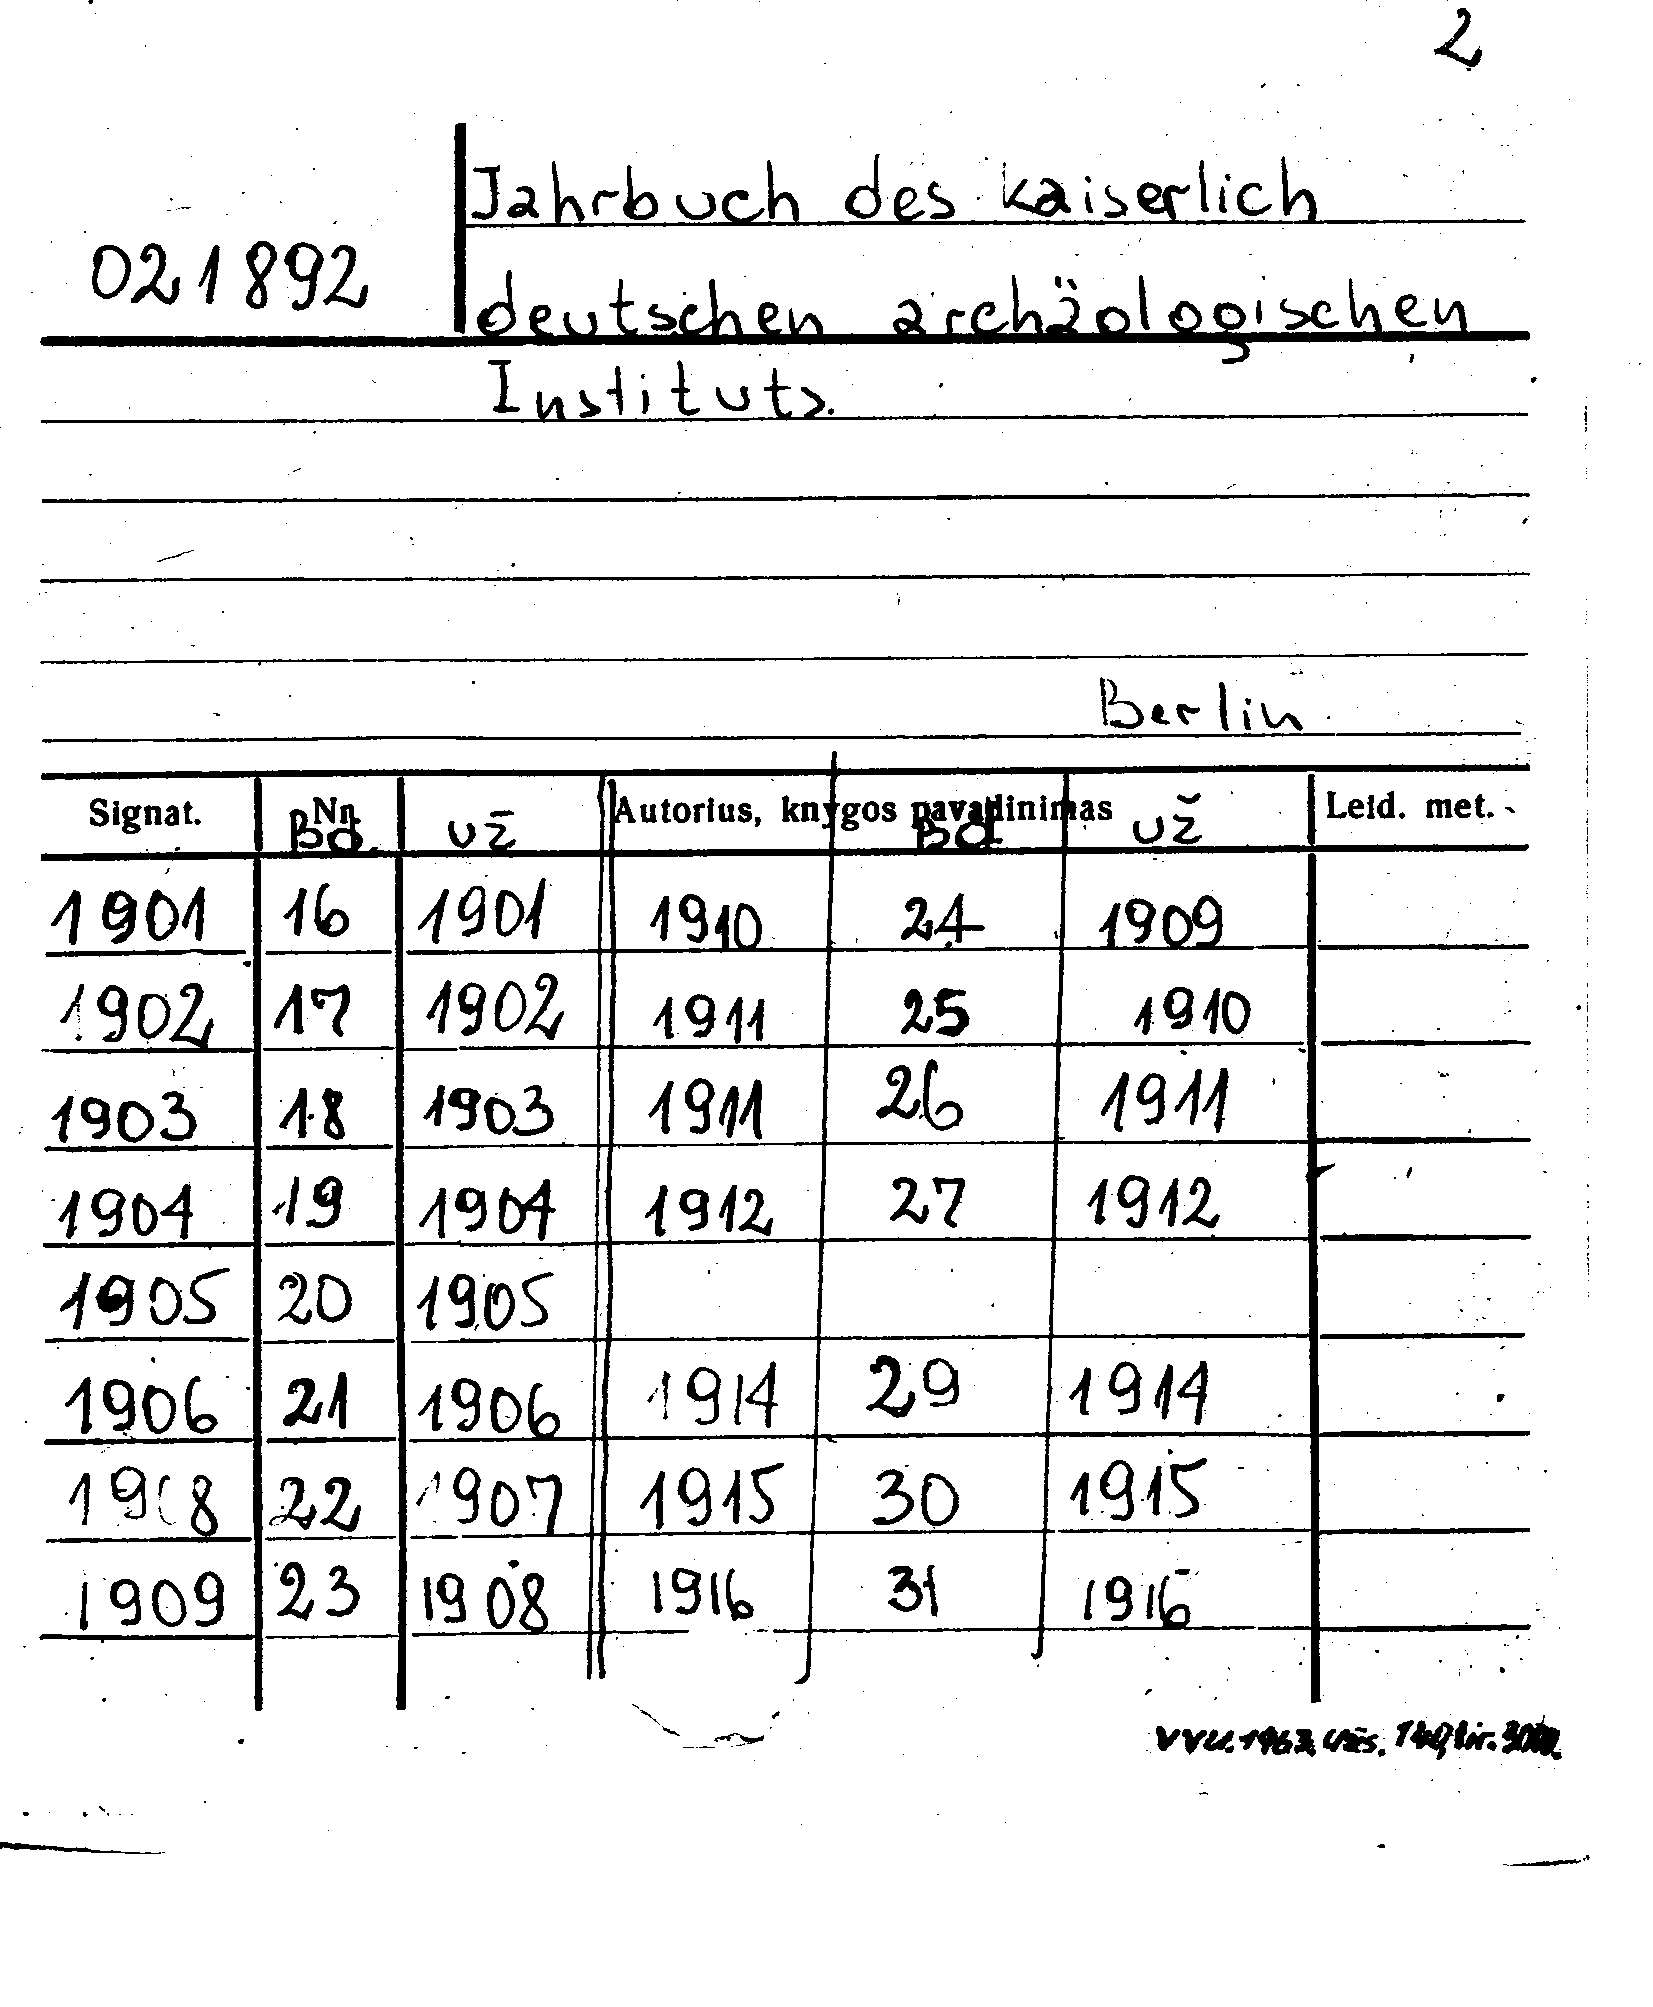 2
Jahrbuch des kaiserlich
021892
deutschen archäologischen
Instituts.
Berlin
Signat. Nr. Autorius, knygos pavadinimas Leid. met.
Bd. už Bd. už
1901 16 1901 1910 24 1909
1902 17 1902 1911 25 1910
1903 18 1903 1911 26 1911
1904 19 1904 1912 27 1912
1905 20 1905
1906 21 1906 1914 29 1914
1908 22 1907 1915 30 1915
1909 23 1908 1916 31 1916
VVU. 1963. Užs.